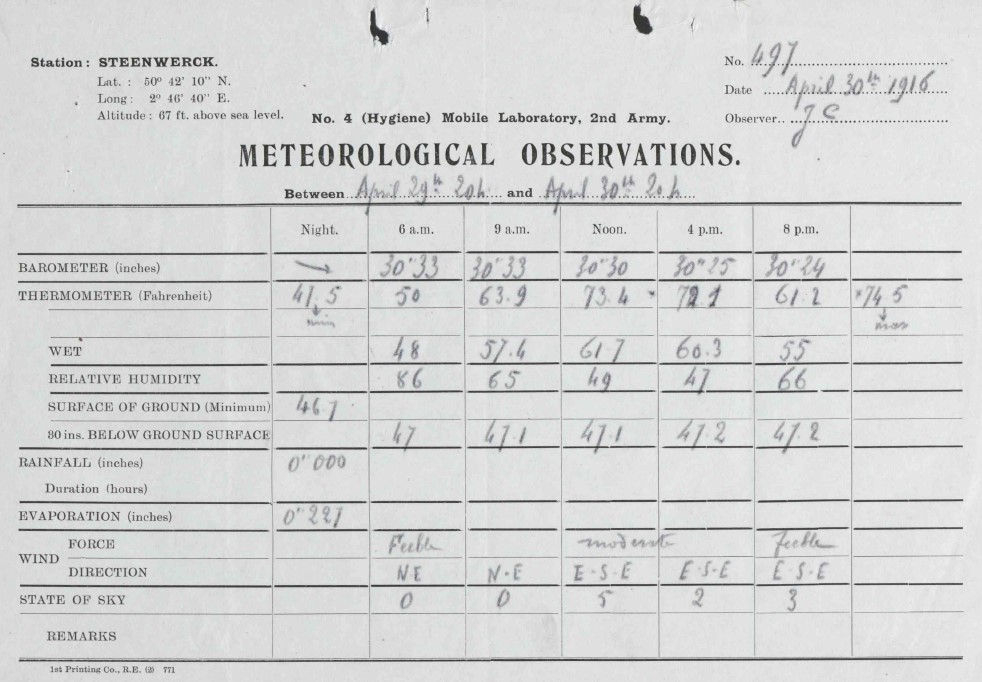 Station: STEENWERCK.
Lat. : 50º 42' 10" N.
Long: 2º 46' 40" E.
Altitude: 67 ft. above sea level.
No. 497
Date April 30th 1916
Observer.. J C
No. 4 (Hygiene) Mobile Laboratory, 2nd Army.
METEOROLOGICAL OBSERVATIONS.
Between April 29th 20h and April 30th 20h
Night. 6 a.m. 9 a.m. Noon. 4 p.m. 8 p.m.
BAROMETER (inches) 30"33 30"33 30"30 30"25 30"24
THERMOMETER (Fahrenheit) 41.5 50 63.9 73.4 * 72.1 61.2 *74.5
min max
WET 48 57.4 61.7 60.3 55
RELATIVE HUMIDITY 86 65 49 47 66
SURFACE OF GROUND (Minimum) 46.7
30 ins. BELOW GROUND SURFACE 47 47.1 47.1 47.2 47.2
RAINFALL (inches) 0"000
Duration (hours)
EVAPORATION (inches) 0"227
WIND
FORCE Feeble moderate feeble
DIRECTION NE N-E E-S-E E-S-E E-S-E
STATE OF SKY 0 0 5 2 3
REMARKS
1st Printing Co., R.E. (2) 771